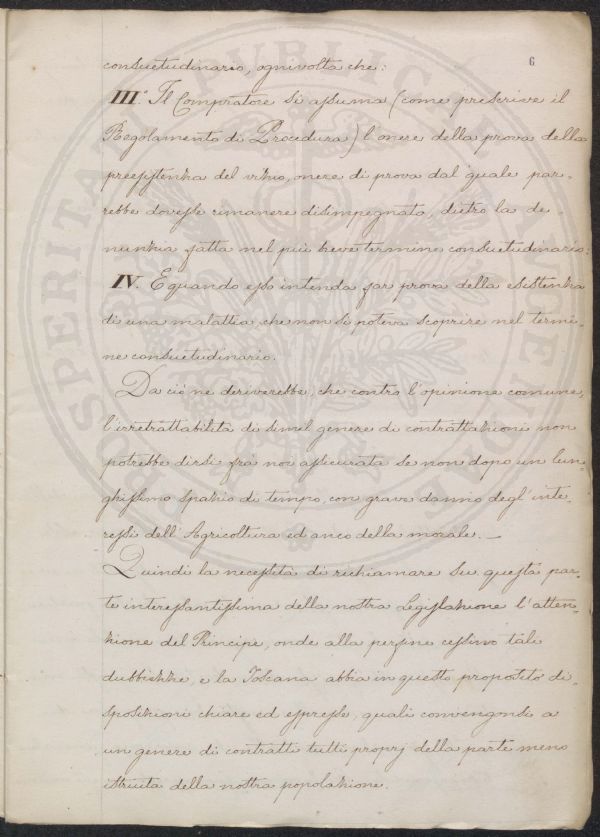 6
consuetudinario, ognivolta che:
III.° Il Compratore si assuma (come prescrive il
Regolamento di Procedura) l'onere della prova della
preesistenza del vizio, onere di prova dal quale par-
rebbe dovesse rimanere disimpegnato, dietro la de-
nunzia fatta nel più breve termine consuetudinario:
IV. E quando esso intenda far prova della esistenza
di una malattia, che non si poteva scoprire nel termi-
ne consuetudinario.
Da ciò ne deriverebbe, che contro l'opinione comune,
l'irretrattabilità di simil genere di contrattazioni non
potrebbe dirsi frà noi assicurata se non dopo un lun-
ghissimo spazio di tempo, con grave danno degl'inte-
ressi dell'Agricoltura ed anco della morale. —
Quindi la necessità di richiamare su questa par-
te interessantissima della nostra Legislazione l'atten-
zione del Principe, onde alla perfine cessino tali
dubbiezze, e la Toscana abbia in questo proposito di-
sposizioni chiare ed espresse, quali convengonsi a
un genere di contratti tutti proprj della parte meno
istruita della nostra popolazione.
PROSPERITATI PUBLICAE